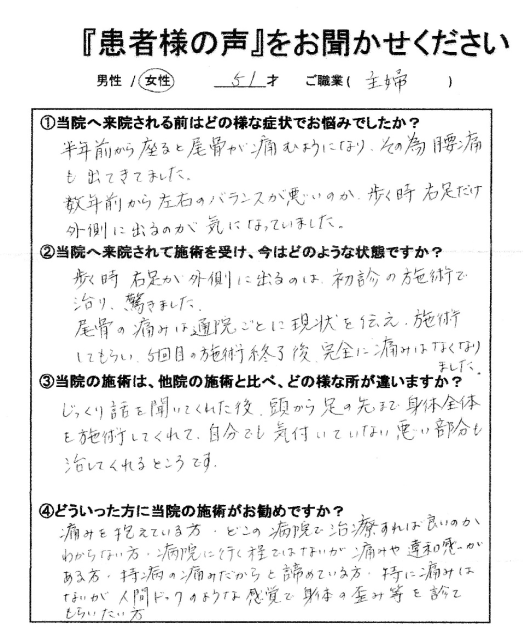 『患者様の声』をお聞かせください
男性 / 女性　51才　ご職業( 主婦 )
①当院へ来院される前はどの様な症状でお悩みでしたか？
半年前から座ると尾骨が痛むようになり、その為腰痛
も出てきてました。
数年前から左右のバランスが悪いのか、歩く時右足だけ
外側に出るのが気になっていました。
②当院へ来院されて施術を受け、今はどのような状態ですか？
歩く時右足が外側に出るのは、初診の施術で
治り、驚きました。
尾骨の痛みは通院ごとに現状を伝え、施術
してもらい、5回目の施術終了後、完全に痛みはなくなり
ました。
③当院の施術は、他院の施術と比べ、どの様な所が違いますか？
じっくり話を聞いてくれた後、頭から足の先まで身体全体
を施術してくれて、自分でも気付いていない悪い部分も
治してくれるところです。
④どういった方に当院の施術がお勧めですか？
痛みを抱えている方・どこの病院で治療すれば良いのか
わからない方・病院に行く程ではないが痛みや違和感が
ある方・持病の痛みだからと諦めている方・特に痛みは
ないが人間ドックのような感覚で身体の歪み等を診て
もらいたい方